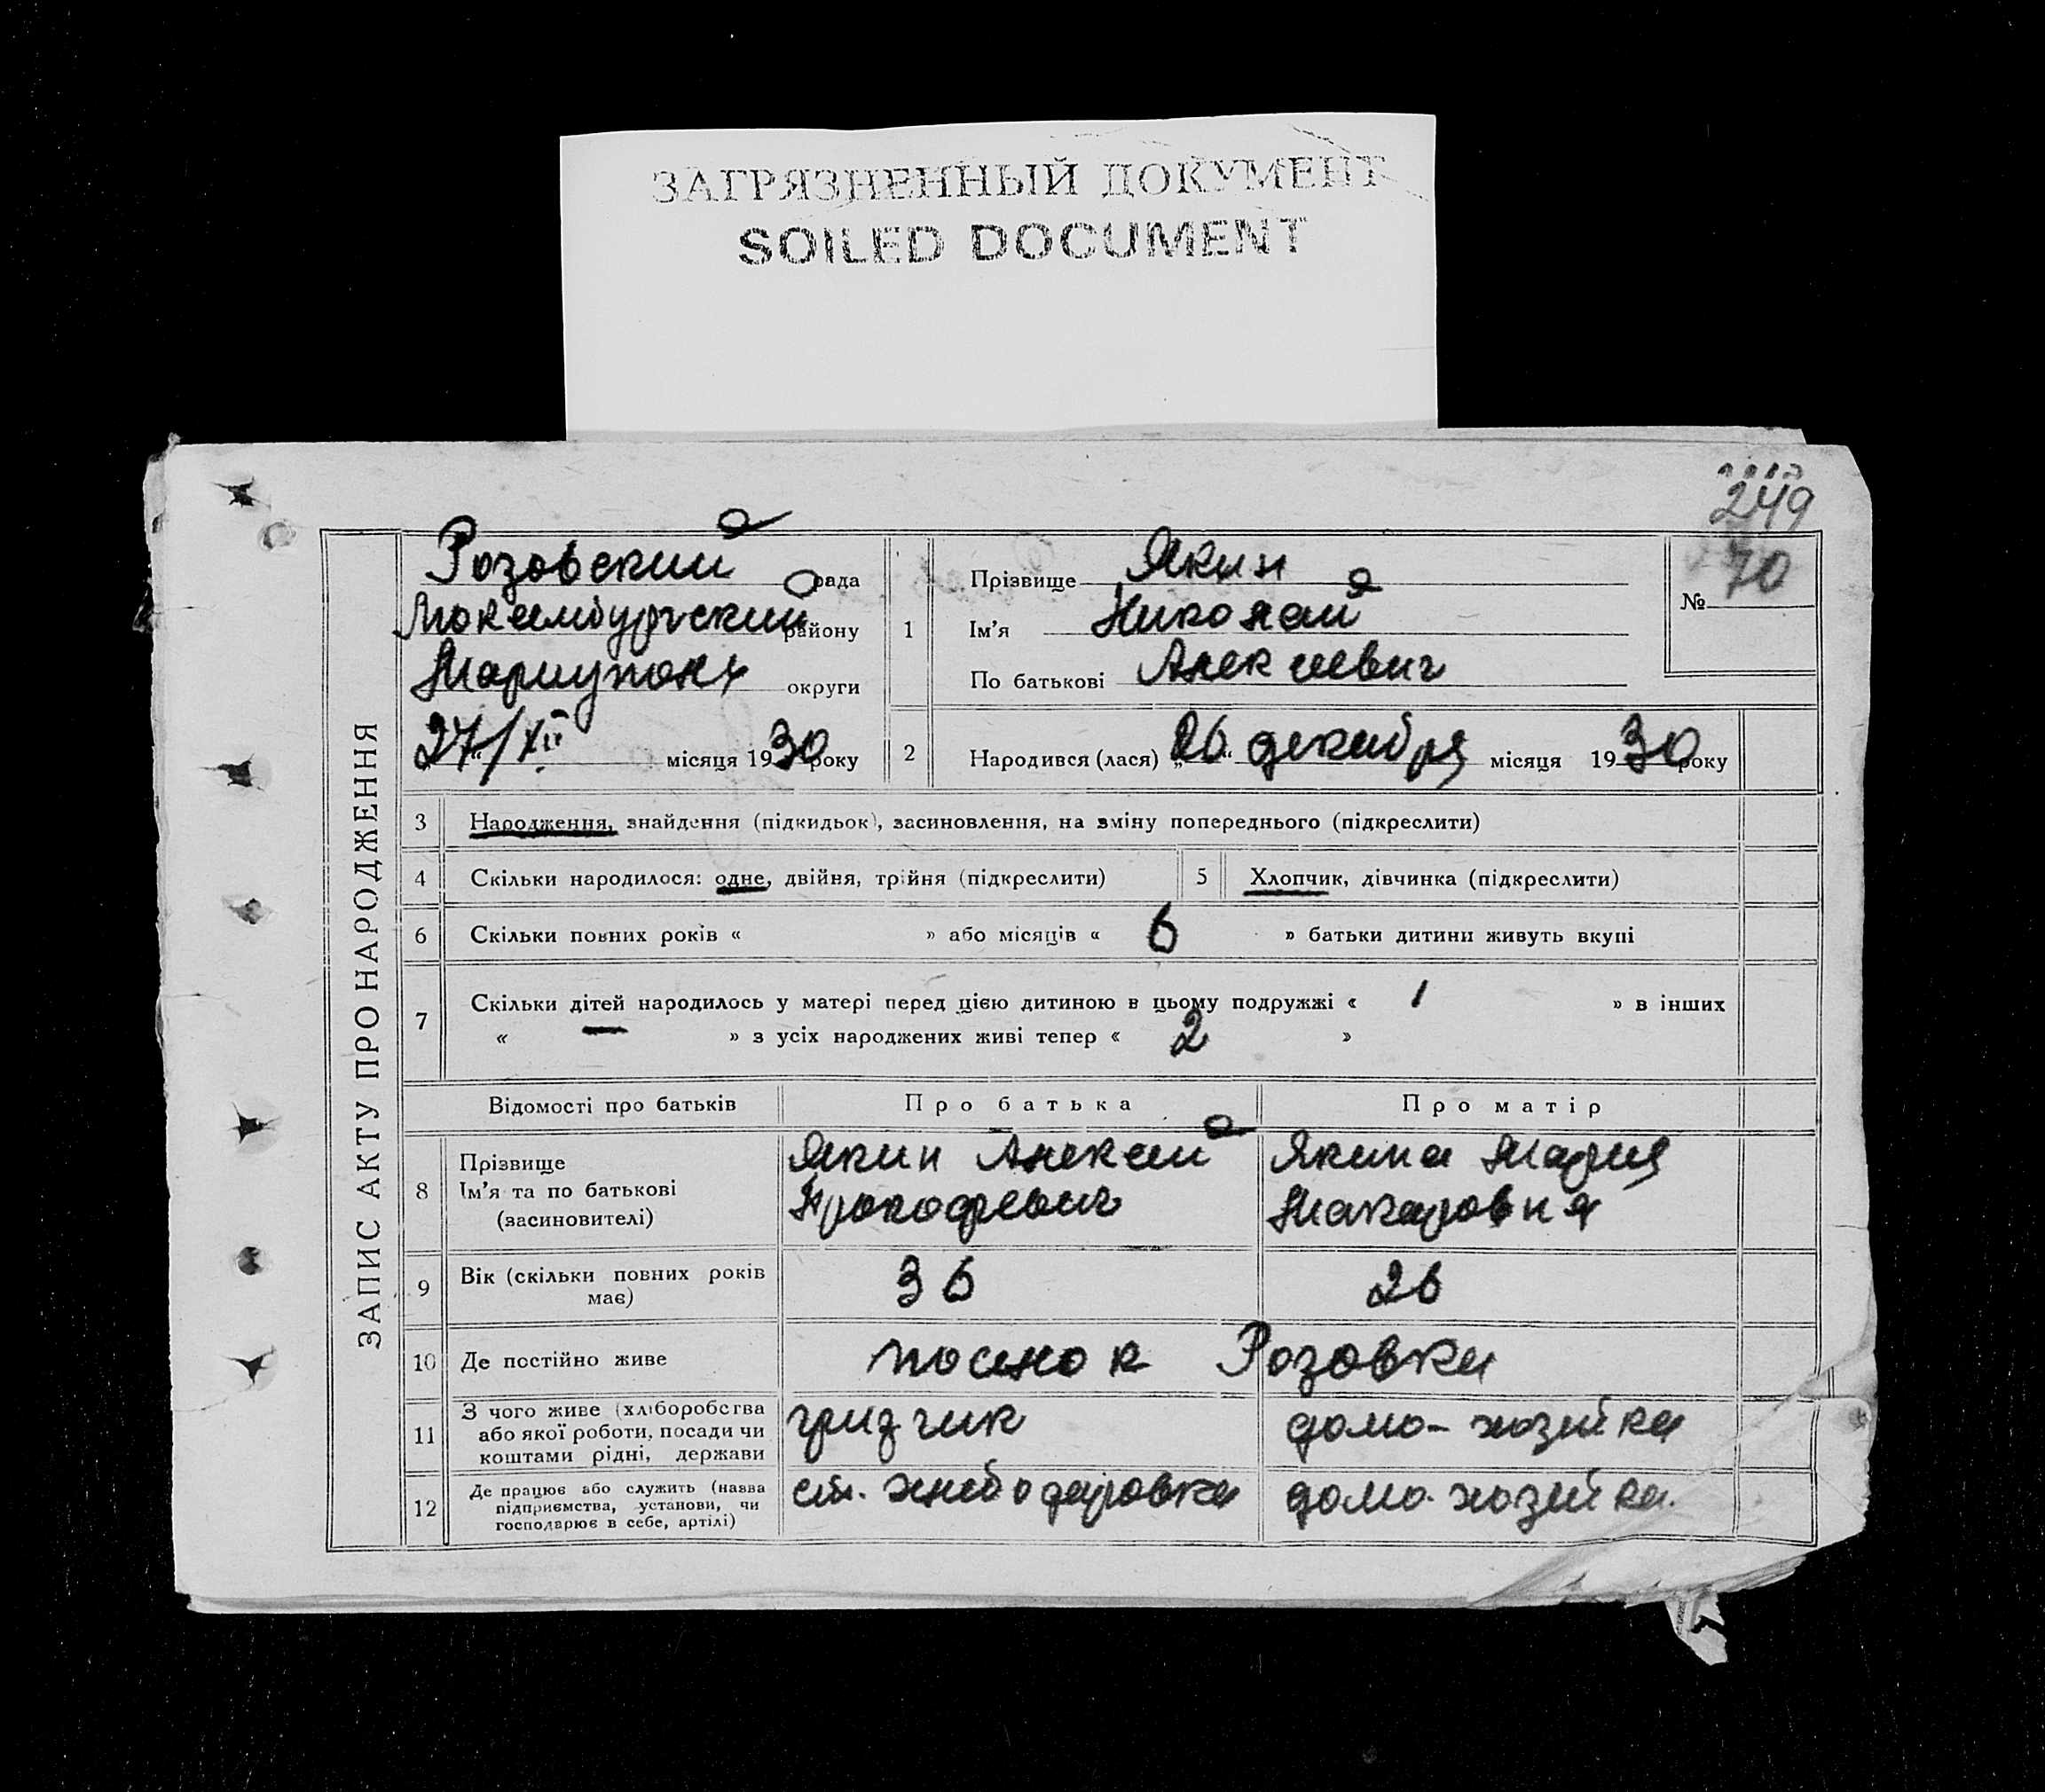 ЗАГРЯЗНЕННЫЙ ДОКУМЕНТ
SOILED DOCUMENT
249
ЗАПИС АКТУ ПРО НАРОДЖЕННЯ
Розовский рада
Люксембургский району
Мариупольск округи
27/XII місяця 1930 року
1 Прізвище Якин
Ім'я Николай
По батькові Алексеевич
№ 70
2 Народився (лася) „26“ декабря місяця 1930 року
3 Народження, знайдення (підкидьок), засиновлення, на зміну попереднього (підкреслити)
4 Скільки народилося: одне, двійня, трійня (підкреслити) 5 Хлопчик, дівчинка (підкреслити)
6 Скільки повних років « » або місяців « 6 » батьки дитини живуть вкупі
7 Скільки дітей народилось у матері перед цією дитиною в цьому подружжі « 1 » в інших
« — » з усіх народжених живі тепер « 2 »
Відомості про батьків Про батька Про матір
8 Прізвище
Ім'я та по батькові
(засиновителі)
Якин Алексей
Прокофевич
Якина Мария
Макаровня
9 Вік (скільки повних років
має)
36 26
10 Де постійно живе поселок Розовка
11 З чого живе (хліборобства
або якої роботи, посади чи
коштами рідні, держави
грузчик домо-хозяйка
12 Де працює або служить (назва
підприємства, установи, чи
господарює в себе, артілі)
ст. Хлебодаровка домо-хозяйка.